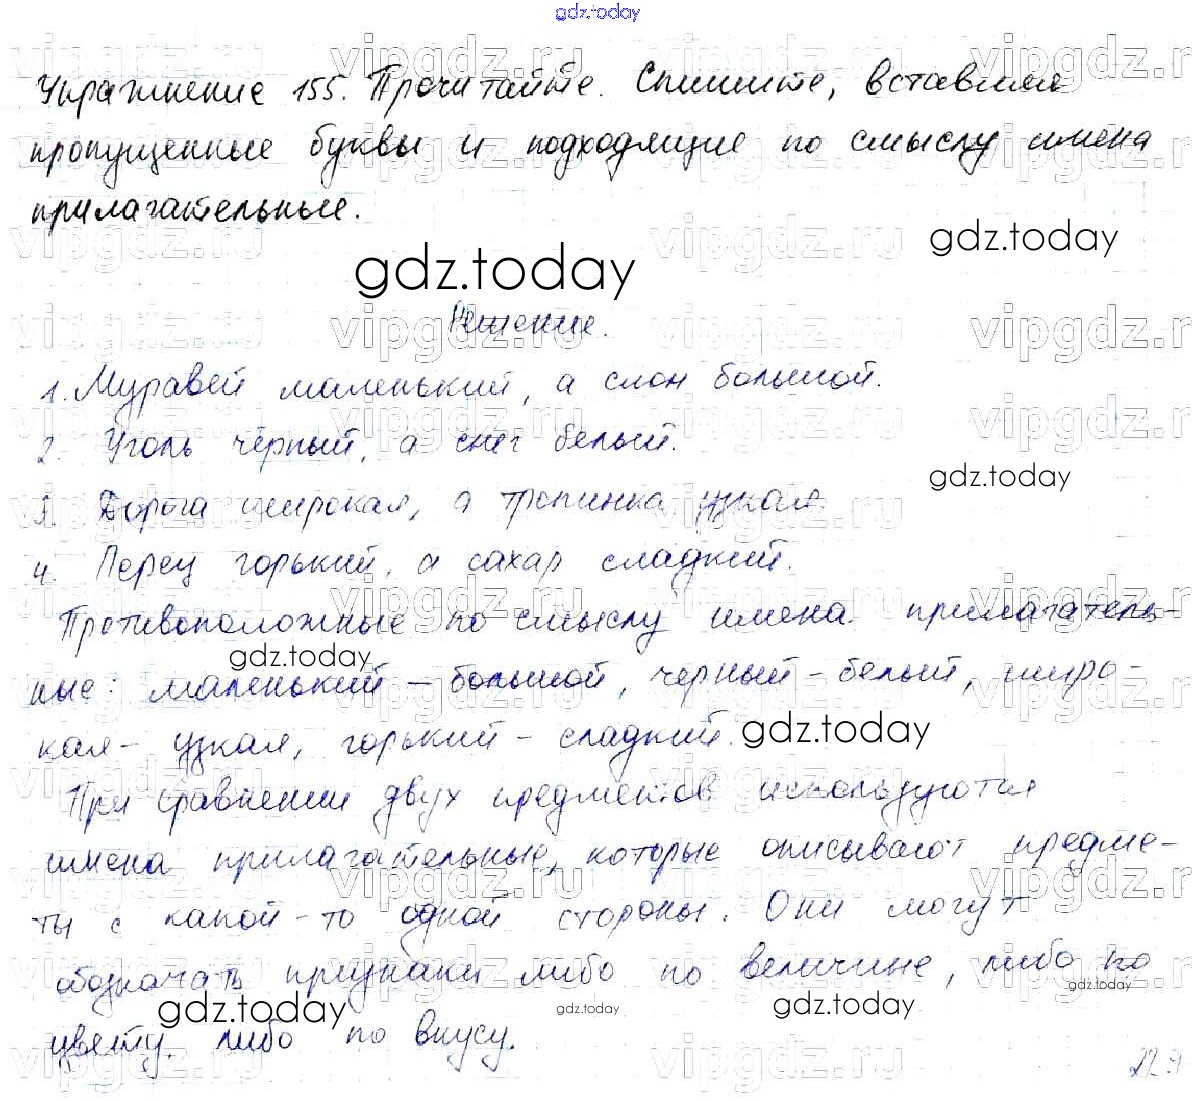 gdz.today
Упражнение 155. Прочитайте. Спишите, вставляя
пропущенные буквы и подходящие по смыслу имена
прилагательные.
gdz.today
gdz.today
Решение.
1. Муравей маленький, а слон большой.
2. Уголь чёрный, а снег белый.
gdz.today
3. Дорога широкая, а тропинка узкая.
4. Перец горький, а сахар сладкий.
Противоположные по смыслу имена прилагатель-
gdz.today
ные: маленький – большой, черный – белый, широ-
кая – узкая, горький – сладкий.
gdz.today
При сравнении двух предметов используются
имена прилагательные, которые описывают предме-
ты с какой-то одной стороны. Они могут
обозначать признаки либо по величине, либо по
gdz.today
gdz.today
gdz.today
gdz.today
цвету, либо по вкусу.
229
vipgdz.ru